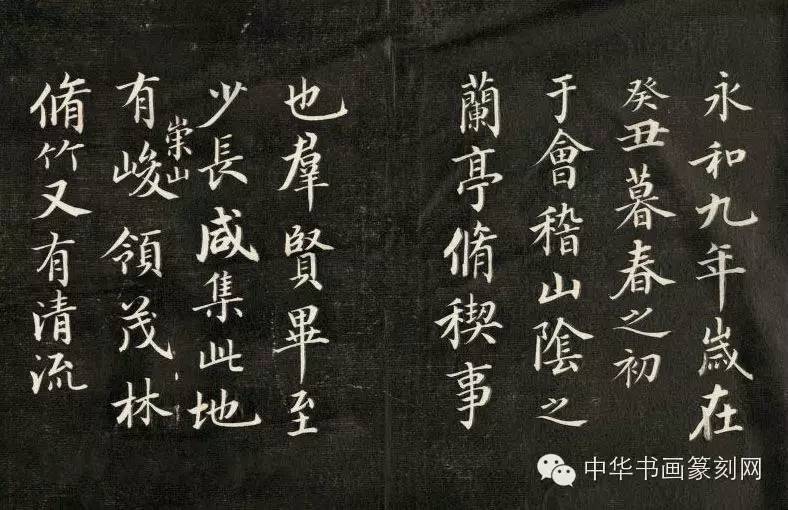 永和九年歲在
癸丑暮春之初
于會稽山陰之
蘭亭脩稧事
也羣賢畢至
少長咸集此地
有崇山峻領茂林
脩竹又有清流
中华书画篆刻网